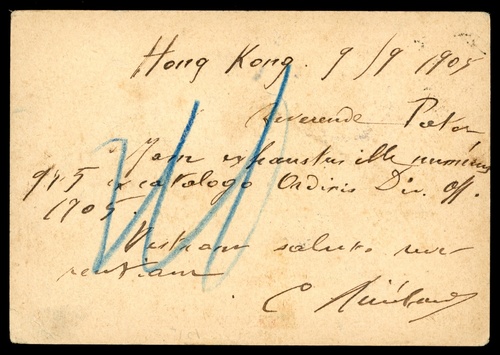 Hong Kong. 9/9 1905
Reverende Pater
Jam exhaustus ille numerus
975 ex catalogo Ordinis Div. Off.
1905.
Vestram saluto reve-
rentiam
C